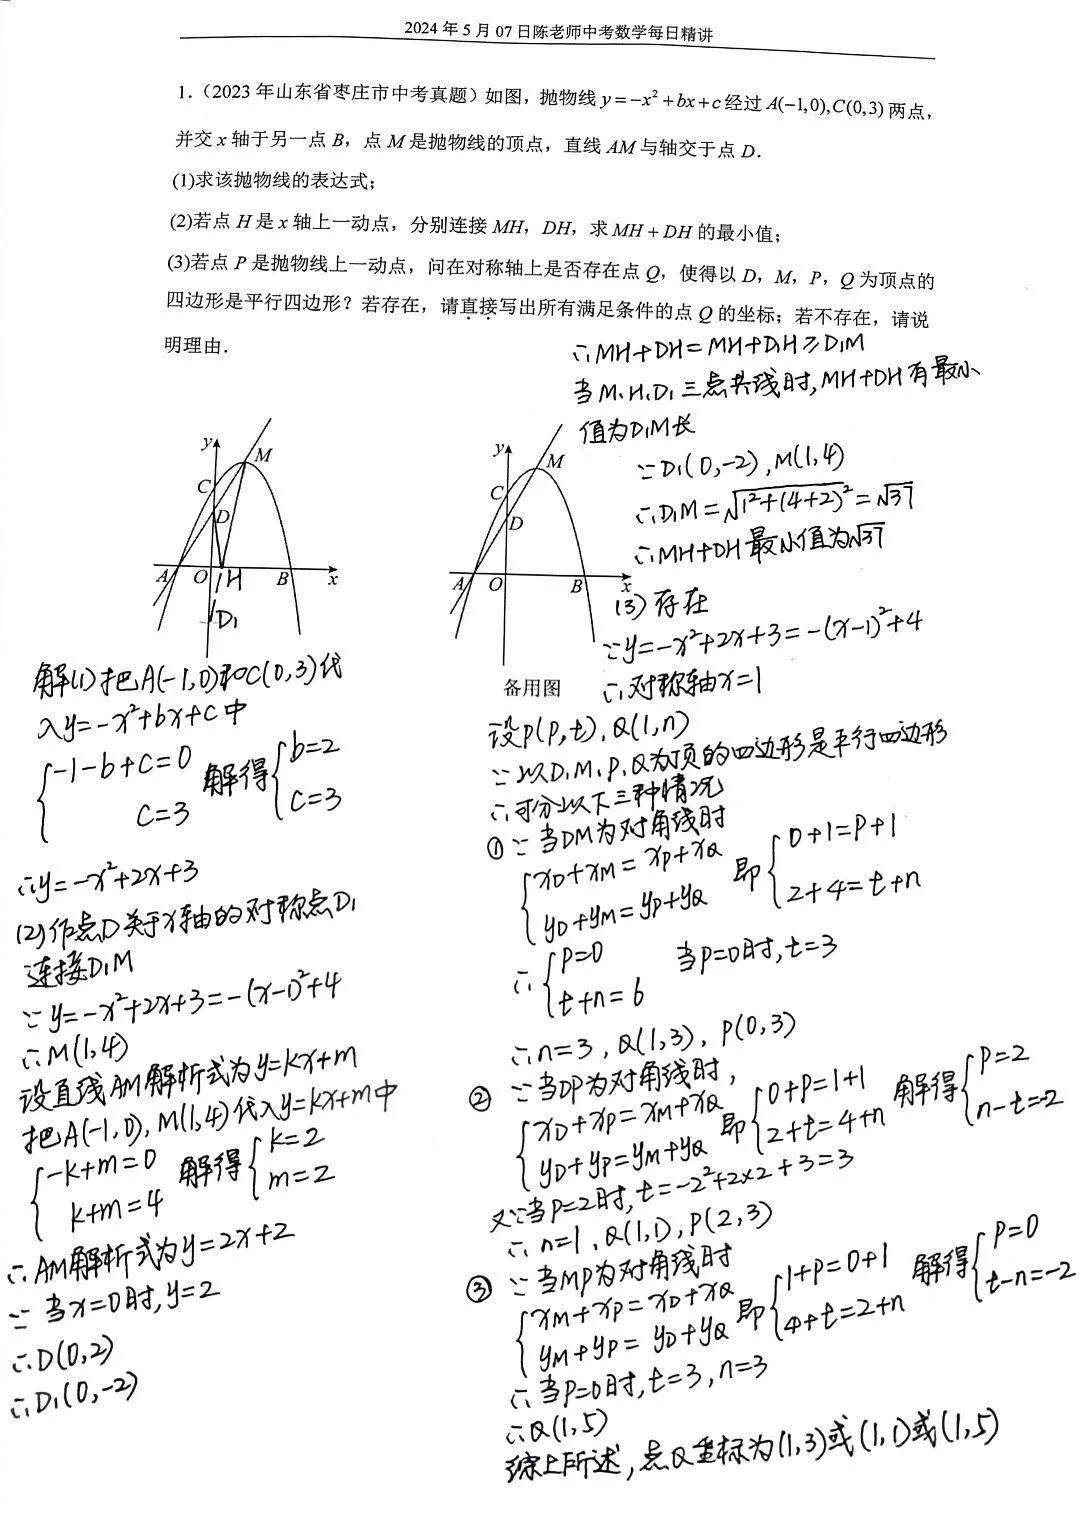 2024 年 5 月 07 日陈老师中考数学每日精讲
1.（2023 年山东省枣庄市中考真题）如图，抛物线 y=-x²+bx+c 经过 A(-1,0),C(0,3) 两点，
并交 x 轴于另一点 B，点 M 是抛物线的顶点，直线 AM 与轴交于点 D.
(1)求该抛物线的表达式；
(2)若点 H 是 x 轴上一动点，分别连接 MH，DH，求 MH+DH 的最小值；
(3)若点 P 是抛物线上一动点，问在对称轴上是否存在点 Q，使得以 D，M，P，Q 为顶点的
四边形是平行四边形？若存在，请直接写出所有满足条件的点 Q 的坐标；若不存在，请说
明理由.
y
M
C
D
A
O
H
B
x
D₁
y
M
C
D
A
O
B
x
备用图
解(1)把A(-1,0)和C(0,3)代
入y=-x²+bx+c中
{-1-b+c=0
c=3
解得{b=2
c=3
∴y=-x²+2x+3
(2)作点D关于x轴的对称点D₁
连接D₁M
∵y=-x²+2x+3=-(x-1)²+4
∴M(1,4)
设直线AM解析式为y=kx+m
把A(-1,0),M(1,4)代入y=kx+m中
{-k+m=0
k+m=4
解得{k=2
m=2
∴AM解析式为y=2x+2
∵当x=0时,y=2
∴D(0,2)
∴D₁(0,-2)
∴MH+DH=MH+D₁H≥D₁M
当M、H、D₁三点共线时,MH+DH有最小
值为D₁M长
∵D₁(0,-2),M(1,4)
∴D₁M=√1²+(4+2)²=√37
∴MH+DH最小值为√37
(3)存在
∵y=-x²+2x+3=-(x-1)²+4
∴对称轴x=1
设P(p,t),Q(1,n)
∵以D、M、P、Q为顶的四边形是平行四边形
∴可分以下三种情况
①∵当DM为对角线时
{xD+xM=xP+xQ
yD+yM=yP+yQ
即{0+1=p+1
2+4=t+n
∴{p=0
t+n=6
当p=0时,t=3
∴n=3,Q(1,3),P(0,3)
②∵当DP为对角线时,
{xD+xP=xM+xQ
yD+yP=yM+yQ
即{0+p=1+1
2+t=4+n
解得{p=2
n-t=-2
又∵当p=2时,t=-2²+2×2+3=3
∴n=1,Q(1,1),P(2,3)
③∵当MP为对角线时
{xM+xP=xD+xQ
yM+yP=yD+yQ
即{1+p=0+1
4+t=2+n
解得{p=0
t-n=-2
∴当p=0时,t=3,n=3
∴Q(1,5)
综上所述,点Q坐标为(1,3)或(1,1)或(1,5)